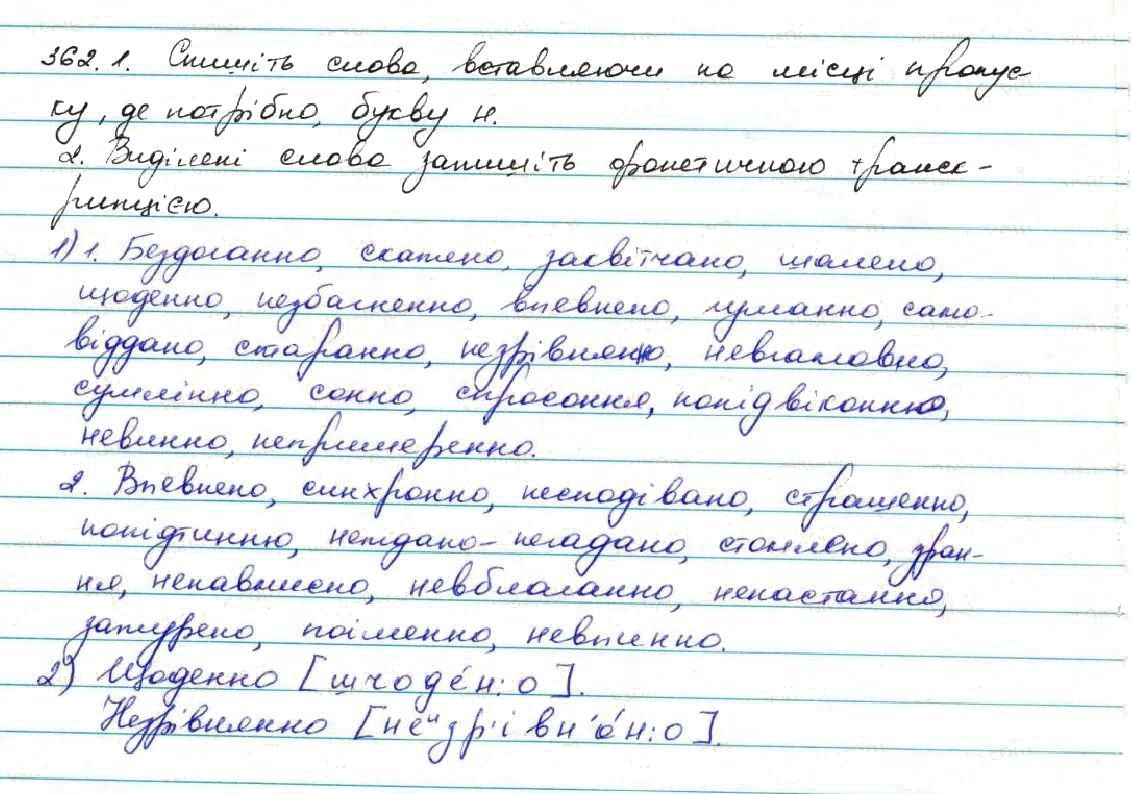 362. 1. Спишіть слова, вставляючи на місці пропус
ку, де потрібно, букву н.
2. Виділені слова запишіть фонетичною транск-
рипцією.
1) 1. Бездоганно, скажено, заквітчано, шалено,
щоденно, незбагненно, впевнено, гуманно, само-
віддано, старанно, незрівнянно, невгамовно,
сумлінно, сонно, спросоння, попідвіконню,
невинно, непримеренно.
2. Впевнено, синхронно, несподівано, страшенно,
попідтинню, неждано-негадано, стомлено, зран-
ня, ненавмисно, невблаганно, ненастанно,
зажурено, поіменно, невпинно.
2) Щоденно [шчоде́н:о].
Незрівнянно [неᶦзр'івн'а́н:о].